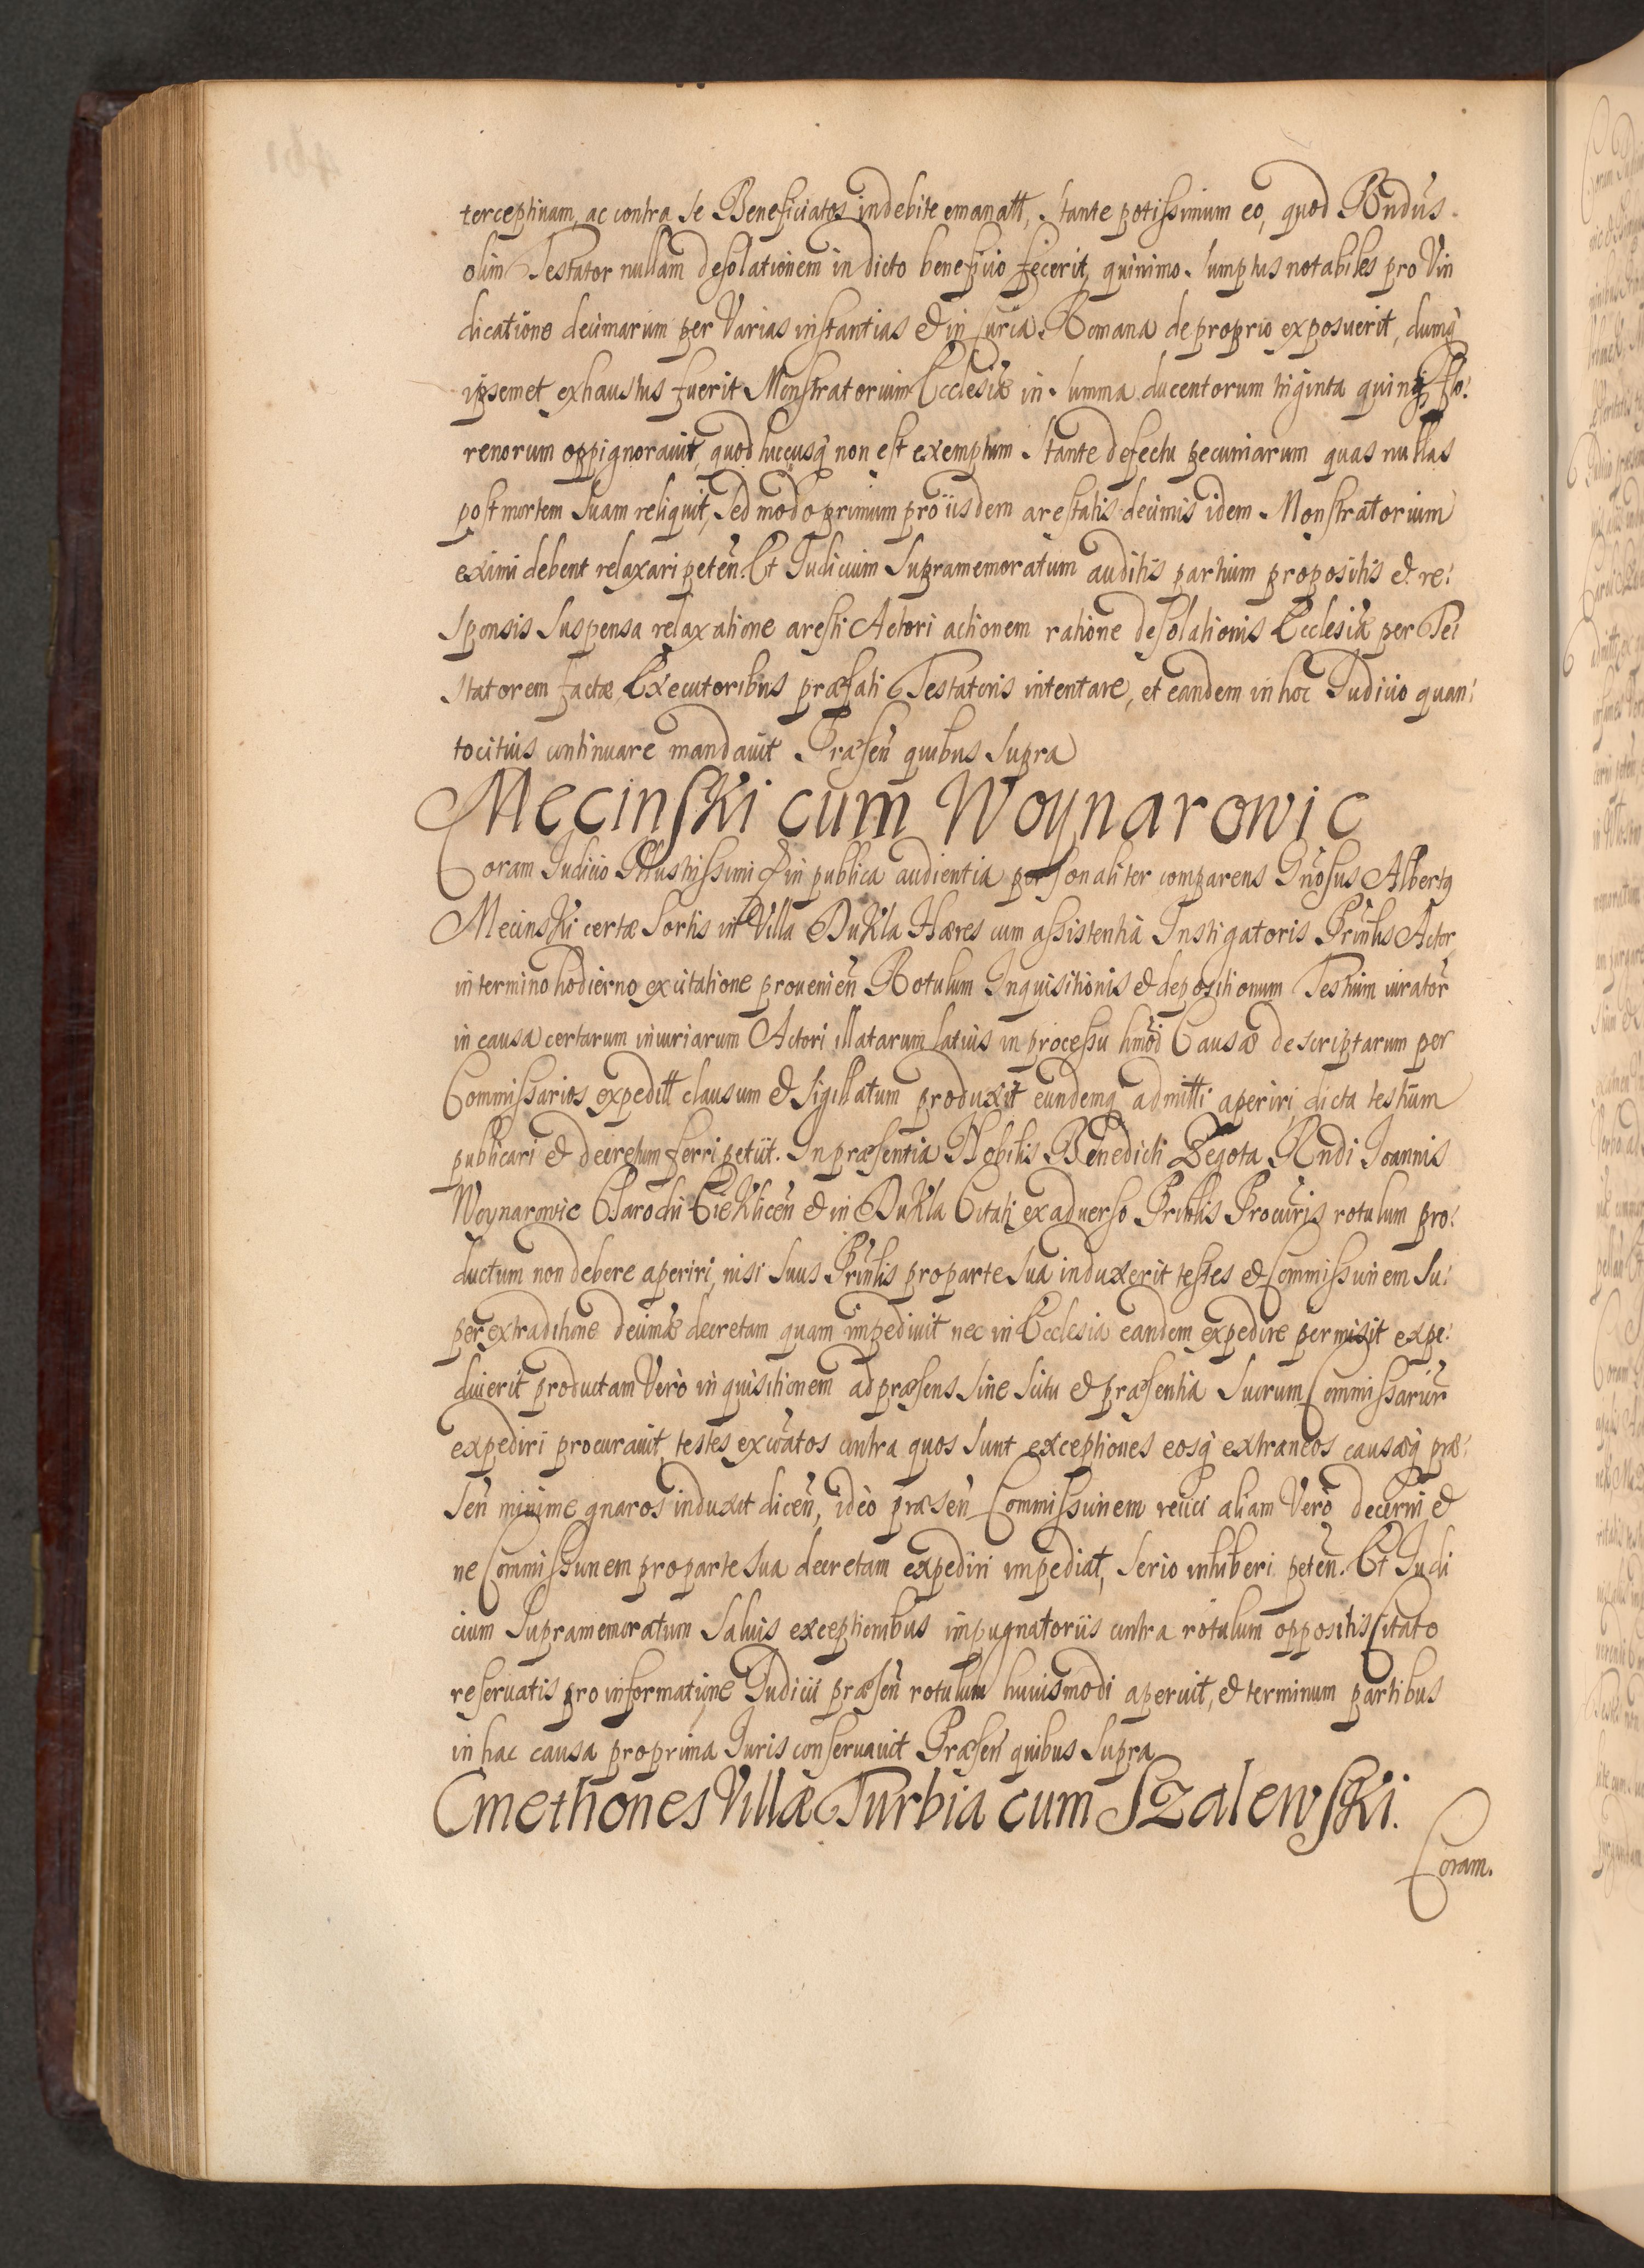 terceptivam, ac contra se Beneficiatos indebite emanatt, stante potissimum eo, quod Rndus
olim Testator nullam desolationem in dicto beneficio fecerit, quinimo sumptus notabiles pro Vin
dicatione decimarum per Varias instantias & in Curia Romana de proprio exposuerit, dumq
ipsemet exhaustus fuerit Monstratorium Ecclesiæ in summa ducentorum triginta quinq flo:
renorum oppignorauit, quod hucusq non est exemptum stante defectu pecuniarum quas nullas
post mortem suam reliquit, sed modo primum pro iisdem arestatis decimis idem Monstratorium
eximi debent relaxari peten. Et Judicium Supramemoratum auditis partium propositis & re:
sponsis suspensa relaxatione aresti Actori actionem ratione desolationis Ecclesiæ per Te:
statorem factæ Executoribus præfati Testatoris intentare, et eandem in hoc Judicio quan:
tocitius continuare mandauit Præsen quibus supra
Mecinski cum Woynarowic
Coram Judicio Illustrissimi & in publica audientia personaliter comparens Gnosus Albertq
Mecinski certæ sortis in Villa Dukla Hæres cum assistentia Instigatoris Prinlis Actor
in termino hodierno ex citatione prouenien Rotulum Inquisitionis & depositionum Testium iurator
in causa certarum iniuriarum Actori illatarum latius in processu hmoi Causæ descriptarum per
Commissarios expeditt clausum & sigillatum produxit eundemq admitti aperiri, dicta testium
publicari & decretum ferri petiit. In præsentia Nobilis Benedicti Zegota Rndi Joannis
Woynarowic Parochi Cieklicen & in Dukla Citati ex aduerso Prinlis Procuris rotulum pro:
ductum non debere aperiri, nisi suus Prinlis pro parte sua induxerit testes & Commissionem su:
per extraditione decimæ decretam quam impediuit nec in Ecclesia eandem expedire permisit expe:
diuerit productam Verò inquisitionem ad præsens sine scitu & præsentia suorum Commissariur
expediri procurauit, testes excoatos contra quos sunt exceptiones eosq extraneos causæq præ:
sen minime gnaros induxit dicen, ideo præsen Commissionem reiici aliam Verò decerni &
ne Commissionem pro parte sua decretam expediri impediat, serio inhiberi peten. Et Judi
cium Supramemoratum Saluis exceptionibus impugnatoriis contra rotulum oppositis Citato
reseruatis pro informatione Judicii præsen rotulum huiusmodi aperuit, & terminum partibus
in hac causa pro prima Juris conseruauit Præsen quibus supra
Cmethones Villæ Turbia cum Szalewski.
Coram.